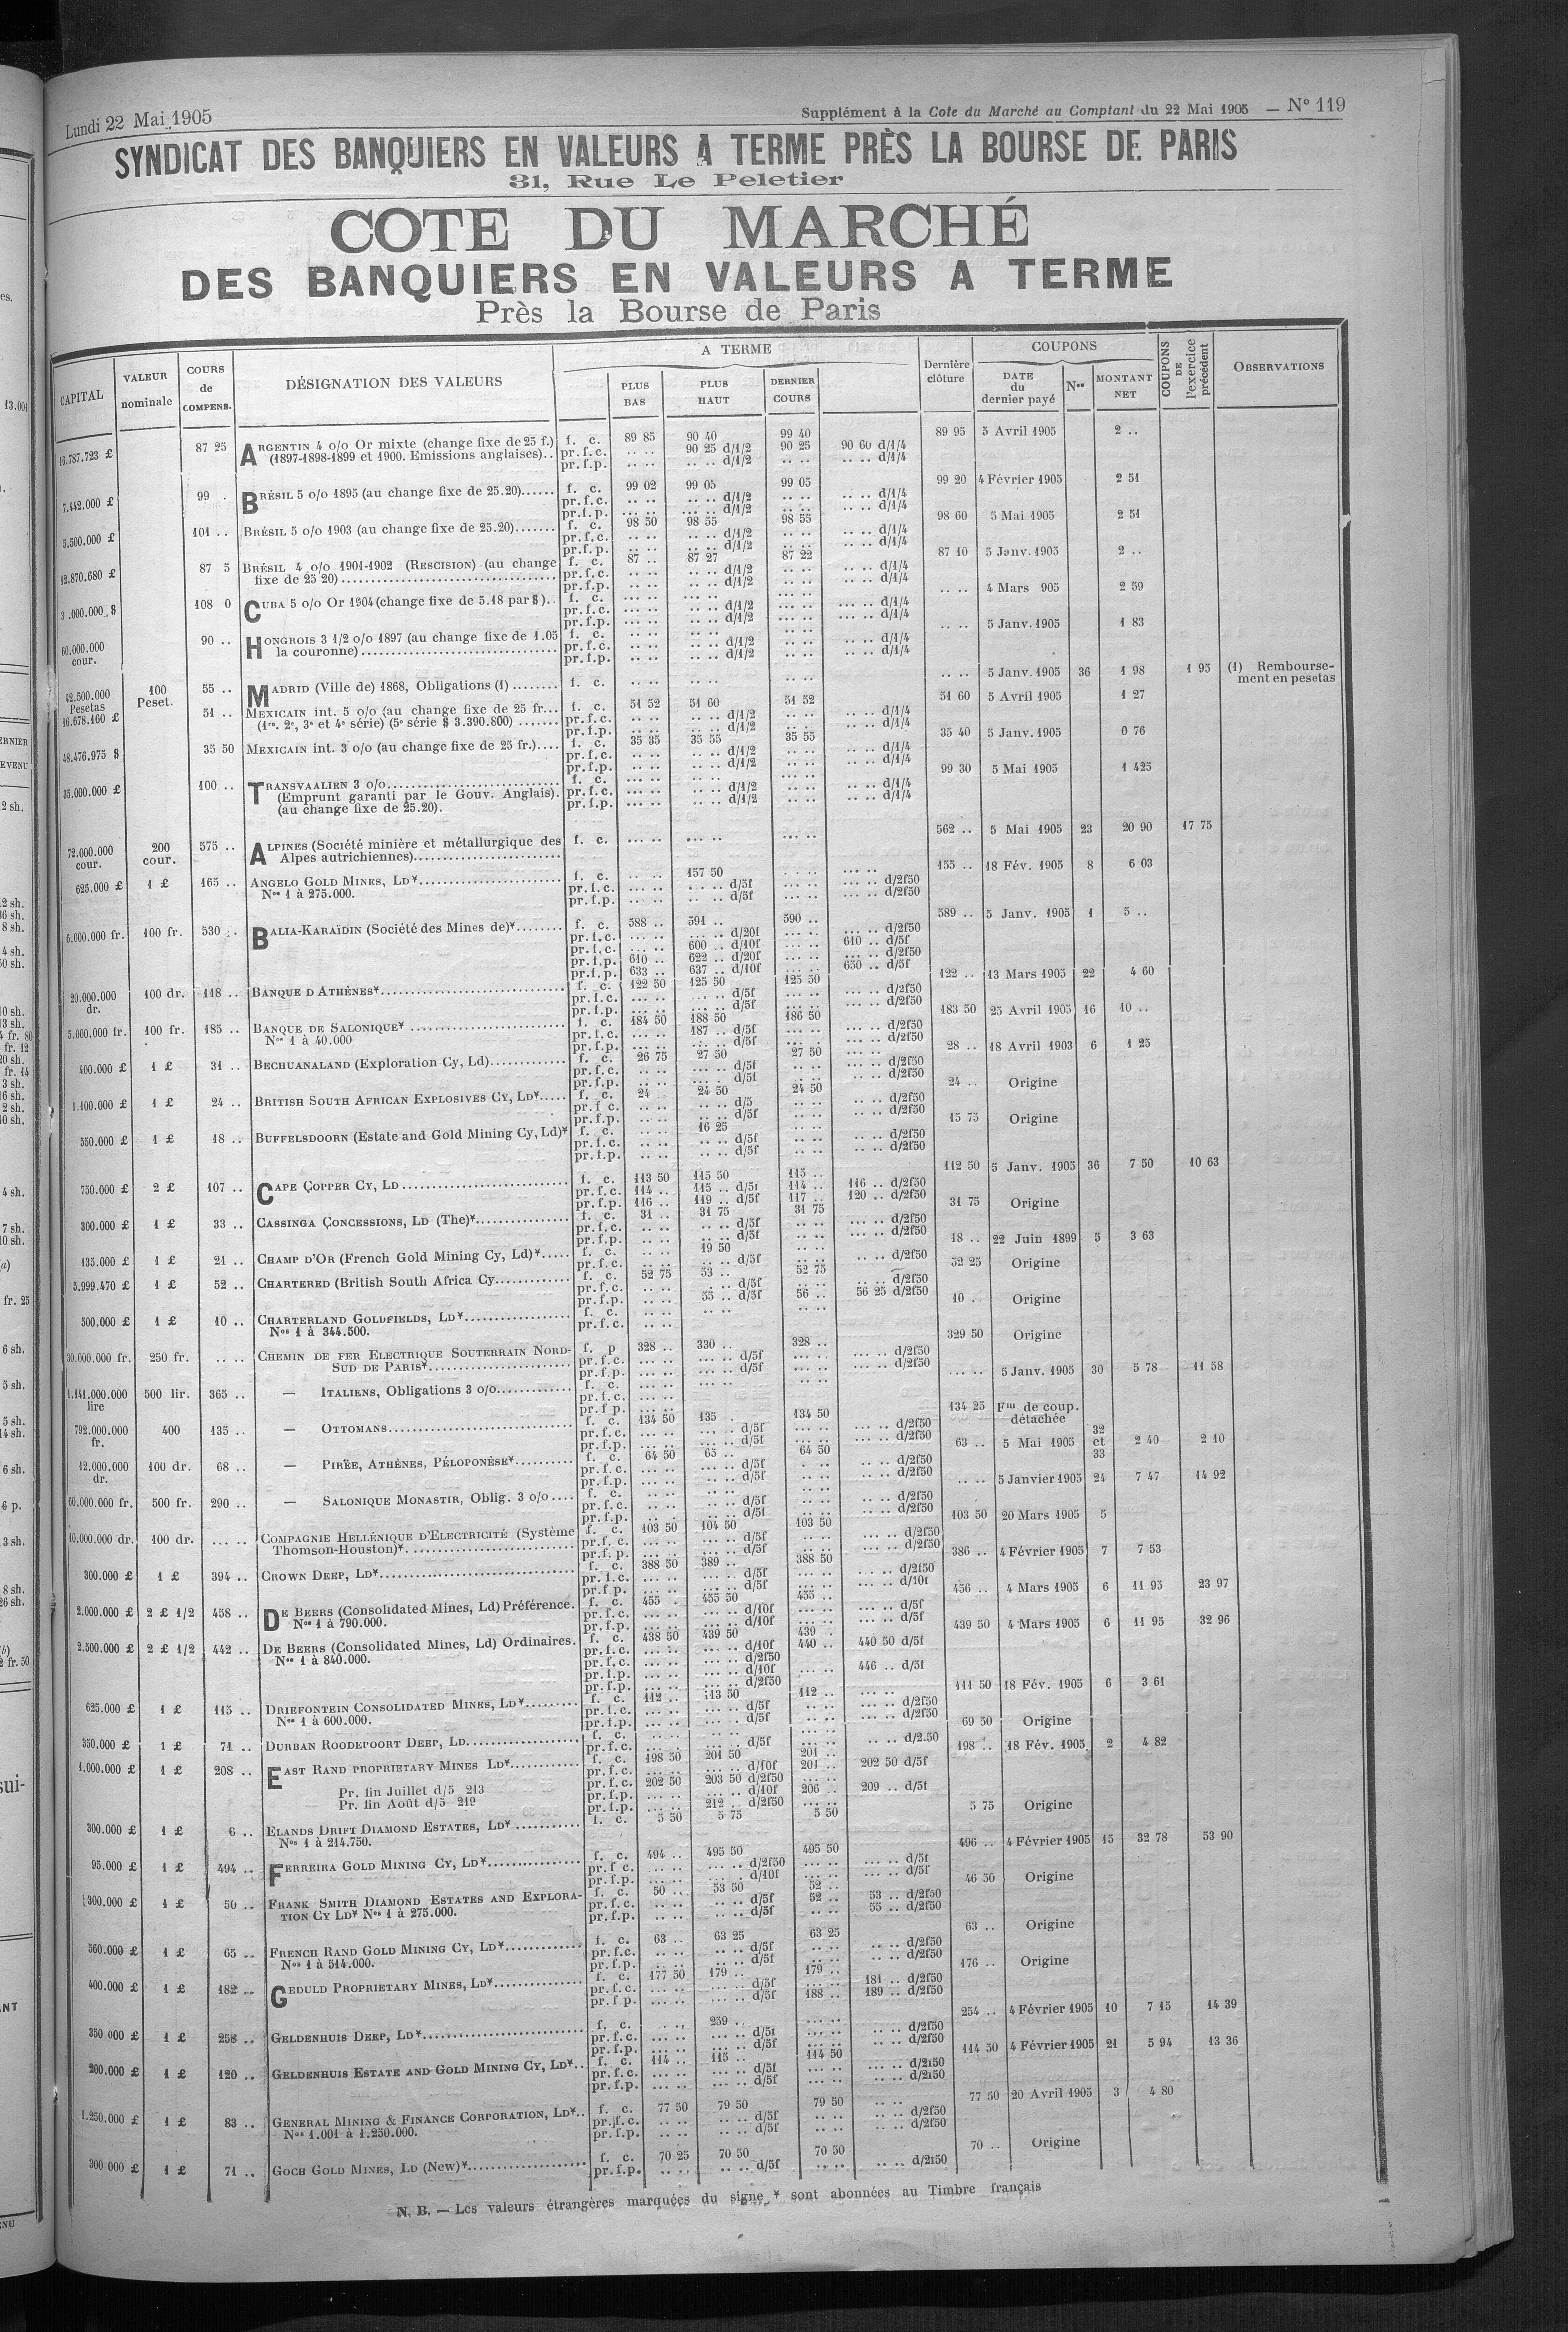 Lundi 22 Mai 1905
Supplément à la Cote du Marché au Comptant du 22 Mai 1905 — N° 119
SYNDICAT DES BANQUIERS EN VALEURS A TERME PRÈS LA BOURSE DE PARIS
31, Rue Le Peletier
COTE DU MARCHÉ
DES BANQUIERS EN VALEURS A TERME
Près la Bourse de Paris
CAPITAL | VALEUR nominale | COURS de COMPENS. | DÉSIGNATION DES VALEURS | A TERME | PLUS BAS | PLUS HAUT | DERNIER COURS | Dernière clôture | COUPONS | DATE du dernier payé | Nos | MONTANT NET | COUPONS DE l'exercice précédent | OBSERVATIONS
16.787.723 £ 87 25 ARGENTIN 4 o/o Or mixte (change fixe de 25 f.) f. c. 89 85 90 40 99 40 89 95 5 Avril 1905 2 ..
(1897-1898-1899 et 1900. Emissions anglaises).. pr.f.c. .. .. 90 25 d/1/2 90 25 90 60 d/1/4
pr.f.p. .. .. .. .. d/1/2 .. .. .. .. d/1/4
7.442.000 £ 99 . BRÉSIL 5 o/o 1895 (au change fixe de 25.20)...... f. c. 99 02 99 05 99 05 99 20 4 Février 1905 2 51
pr.f.c. .. .. .. .. d/1/2 .. .. .. .. d/1/4
pr.f.p. .. .. .. .. d/1/2 .. .. .. .. d/1/4
5.500.000 £ 101 .. BRÉSIL 5 o/o 1903 (au change fixe de 25.20)....... f. c. 98 50 98 55 98 55 98 60 5 Mai 1905 2 51
pr.f.c. .. .. .. .. d/1/2 .. .. .. .. d/1/4
pr.f.p. .. .. .. .. d/1/2 .. .. .. .. d/1/4
12.870.680 £ 87 5 BRÉSIL 4 o/o 1901-1902 (RESCISION) (au change f. c. 87 .. 87 27 87 22 87 10 5 Janv. 1905 2 ..
fixe de 25 20) pr.f.c. .. .. .. .. d/1/2 .. .. .. .. d/1/4
pr.f.p. .. .. .. .. d/1/2 .. .. .. .. d/1/4
3 .000.000 $ 108 0 CUBA 5 o/o Or 1904 (change fixe de 5.18 par $).. f. c. .. .. .. .. .. .. .. .. 4 Mars 905 2 59
pr.f.c. .. .. .. .. d/1/2 .. .. .. .. d/1/4
pr.f.p. .. .. .. .. d/1/2 .. .. .. .. d/1/4
60.000.000 cour. 90 .. HONGROIS 3 1/2 o/o 1897 (au change fixe de 1.05 f. c. .. .. .. .. .. .. .. .. 5 Janv. 1905 1 83
la couronne) pr.f.c. .. .. .. .. d/1/2 .. .. .. .. d/1/4
pr.f.p. .. .. .. .. d/1/2 .. .. .. .. d/1/4
42.500.000 Pesetas 100 Peset. 55 .. MADRID (Ville de) 1868, Obligations (1) ........ f. c. .. .. .. .. .. .. .. .. 5 Janv. 1905 36 1 98 1 95 (1) Remboursement en pesetas
16.678.160 £ 51 .. MEXICAIN int. 5 o/o (au change fixe de 25 fr... f. c. 51 52 51 60 51 52 51 60 5 Avril 1905 1 27
(1re, 2e, 3e et 4e série) (5e série $ 3.390.800) ....... pr.f.c. .. .. .. .. d/1/2 .. .. .. .. d/1/4
pr.f.p. .. .. .. .. d/1/2 .. .. .. .. d/1/4
48.476.975 $ 35 50 MEXICAIN int. 3 o/o (au change fixe de 25 fr.).... f. c. 35 35 35 55 35 55 35 40 5 Janv. 1905 0 76
pr.f.c. .. .. .. .. d/1/2 .. .. .. .. d/1/4
pr.f.p. .. .. .. .. d/1/2 .. .. .. .. d/1/4
35.000.000 £ 100 .. TRANSVAALIEN 3 o/o f. c. .. .. .. .. .. .. 99 30 5 Mai 1905 1 425
(Emprunt garanti par le Gouv. Anglais). pr.f.c. .. .. .. .. d/1/2 .. .. .. .. d/1/4
(au change fixe de 25.20). pr.f.p. .. .. .. .. d/1/2 .. .. .. .. d/1/4
72.000.000 cour. 200 cour. 575 .. ALPINES (Société minière et métallurgique des f. c. ... .. ... .. ... .. 562 .. 5 Mai 1905 23 20 90 17 75
Alpes autrichiennes)
625.000 £ 1 £ 165 .. ANGELO GOLD MINES, LD* f. c. .. .. 157 50 .. .. 155 .. 18 Fév. 1905 8 6 03
Nos 1 à 275.000. pr.f.c. ... .. .. .. d/5f ... .. ... .. d/2f50
pr.f.p. ... .. .. .. d/5f ... .. ... .. d/2f50
6.000.000 fr. 100 fr. 530 .. BALIA-KARAÏDIN (Société des Mines de)* f. c. 588 .. 591 .. 590 .. 589 .. 5 Janv. 1905 1 5 ..
pr.f.c. ... .. ... .. d/20f ... .. ... .. d/2f50
pr.f.c. ... .. 600 .. d/10f ... .. 610 .. d/5f
pr.f.p. 610 .. 622 .. d/20f ... .. ... .. d/2f50
pr.f.p. 633 .. 637 .. d/10f ... .. 650 .. d/5f
20.000.000 dr. 100 dr. 118 .. BANQUE D ATHÈNES* f. c. 122 50 125 50 125 50 122 .. 13 Mars 1905 22 4 60
pr.f.c. ... .. ... .. d/5f ... .. ... .. d/2f50
pr.f.p. ... .. ... .. d/5f ... .. ... .. d/2f50
5.000.000 fr. 100 fr. 185 .. BANQUE DE SALONIQUE* f. c. 184 50 188 50 186 50 183 50 25 Avril 1905 16 10 ..
Nos 1 à 40.000 pr.f.c. ... .. 187 .. d/5f ... .. ... .. d/2f50
pr.f.p. ... .. ... .. d/5f ... .. ... .. d/2f50
400.000 £ 1 £ 31 .. BECHUANALAND (Exploration Cy, Ld) f. c. 26 75 27 50 27 50 28 .. 18 Avril 1903 6 1 25
pr.f.c. .. .. ... .. d/5f .. .. .. .. d/2f50
pr.f.p. .. .. ... . d/5f .. .. .. .. d/2f50
1.100.000 £ 1 £ 24 .. BRITISH SOUTH AFRICAN EXPLOSIVES CY, LD* f. c. 24 24 50 24 50 24 .. Origine
pr.f c. .. .. .. .. d/5 .. .. .. .. d/2f50
pr.f.p. .. .. .. .. d/5f .. .. .. .. d/2f50
550.000 £ 1 £ 18 .. BUFFELSDOORN (Estate and Gold Mining Cy, Ld)* f. c. .. .. 16 25 .. .. 15 75 Origine
pr.f.c. .. .. .. .. d/5f .. .. .. .. d/2f50
pr.f.p. .. .. .. .. d/5f .. .. .. .. d/2f50
750.000 £ 2 £ 107 .. CAPE COPPER CY, LD f. c. 113 50 115 50 115 .. 112 50 5 Janv. 1905 36 7 50 10 63
pr.f.c. 114 .. 115 .. d/5f 114 .. 116 .. d/2f50
pr.f.p. 116 .. 119 .. d/5f 117 .. 120 .. d/2f50
300.000 £ 1 £ 33 .. CASSINGA CONCESSIONS, LD (The)* f. c. 31 .. 31 75 31 75 31 75 Origine
pr.f.c. .. .. .. .. d/5f .. .. ... .. d/2f50
pr.f.p. .. .. .. .. d/5f .. .. ... .. d/2f50
135.000 £ 1 £ 21 .. CHAMP D'OR (French Gold Mining Cy, Ld)* f. c. .. .. 19 50 .. .. 18 .. 22 Juin 1899 5 3 63
pr.f.c. .. .. .. .. d/5f .. .. .. .. d/2f50
5.999.470 £ 1 £ 52 .. CHARTERED (British South Africa Cy f. c. 52 75 53 .. 52 75 52 25 Origine
pr.f.c. .. .. .. .. d/5f .. .. .. .. d/2f50
pr.f.p. .. .. 55 .. d/5f 56 .. 56 25 d/2f50
500.000 £ 1 £ 10 .. CHARTERLAND GOLDFIELDS, LD* f. c. .. .. .. .. .. .. 10 . Origine
Nos 1 à 344.500. pr.f.c. .. ..
30.000.000 fr. 250 fr. .. .. CHEMIN DE FER ELECTRIQUE SOUTERRAIN NORD- f. p 328 .. 330 .. 328 .. 329 50 Origine
SUD DE PARIS* pr.f.c. ... .. ... .. d/5f ... .. ... .. d/2f50
pr.f.p. ... .. ... .. d/5f ... .. ... .. d/2f50
1.141.000.000 lire 500 lir. 365 .. — ITALIENS, Obligations 3 o/o f. c. ... .. ... .. ... .. ... .. 5 Janv. 1905 30 5 78 11 58
pr.f.c. ... ..
pr.f p. ... ..
792.000.000 fr. 400 135 .. — OTTOMANS f. c. 134 50 135 . 134 50 134 25 Fm de coup. détachée
pr.f.c. ... .. ... .. d/5f ... .. ... .. d/2f50
pr.f.p. ... .. ... .. d/5f ... .. ... .. d/2f50
12.000.000 dr. 100 dr. 68 .. — PIRÉE, ATHÈNES, PÉLOPONÈSE* f. c. 64 50 65 .. 64 50 63 .. 5 Mai 1905 32 et 33 2 40 2 10
pr.f.c. ... .. ... .. d/5f . .. ... .. d/2f50
pr.f.p. ... .. ... .. d/5f .. .. ... .. d/2f50
60.000.000 fr. 500 fr. 290 .. — SALONIQUE MONASTIR, Oblig. 3 o/o.... f. c. .. .. .. .. .. .. .. .. 5 Janvier 1905 24 7 47 14 92
pr.f.c. .. .. .. .. d/5f .. .. .. .. d/2f50
pr.f.p. .. .. .. .. d/5f .. .. .. .. d/2f50
10.000.000 dr. 100 dr. ... .. COMPAGNIE HELLÉNIQUE D'ELECTRICITÉ (Système f. c. 103 50 104 50 103 50 103 50 20 Mars 1905 5
Thomson-Houston)* pr.f. c. ... .. ... .. d/5f .. .. ... .. d/2f50
pr.f. p. ... .. ... .. d/5f .. .. ... .. d/2f50
300.000 £ 1 £ 394 .. CROWN DEEP, LD* f. c. 388 50 389 .. 388 50 386 .. 4 Février 1905 7 7 53
pr.f.c. ... .. ... .. d/5f ... .. ... .. d/2f50
pr.f p. ... .. ... .. d/5f ... .. ... .. d/10f
2.000.000 £ 2 £ 1/2 458 .. DE BEERS (Consolidated Mines, Ld) Préférence. f. c. 455 . 455 50 455 .. 456 .. 4 Mars 1905 6 11 95 23 97
Nos 1 à 790.000. pr.f.c. ... .. ... .. d/10f ... .. ... .. d/5f
pr.f.p. ... .. ... .. d/10f ... .. ... .. d/5f
2.500.000 £ 2 £ 1/2 442 .. DE BEERS (Consolidated Mines, Ld) Ordinaires. f. c. 438 50 439 50 439 . 439 50 4 Mars 1905 6 11 95 32 96
Nos 1 à 840.000. pr.f.c. ... .. ... .. d/10f 440 .. 440 50 d/5f
pr.f.c. ... .. ... .. d/2f50
pr.f.p. ... .. ... .. d/10f ... .. 446 .. d/5f
pr.f.p. ... .. ... .. d/2f50
625.000 £ 1 £ 115 .. DRIEFONTEIN CONSOLIDATED MINES, LD* f. c. 112 .. 113 50 112 .. 111 50 18 Fév. 1905 6 3 61
Nos 1 à 600.000. pr.f.c. ... .. ... .. d/5f .. .. ... .. d/2f50
pr.f.p. ... .. ... .. d/5f .. .. ... .. d/2f50
350.000 £ 1 £ 71 .. DURBAN ROODEPOORT DEEP, LD f. c. .. .. .. .. ... .. 69 50 Origine
pr.f.c. .. .. ... .. d/5f ... .. .. .. d/2.50
1.000.000 £ 1 £ 208 .. EAST RAND PROPRIETARY MINES LD* f. c. 198 50 201 50 201 .. 198 .. 18 Fév. 1905 2 4 82
pr.f.c. ... .. ... .. d/10f 201 .. 202 50 d/5f
pr.f.c. 202 50 203 50 d/2f50 ... ..
Pr. fin Juillet d/5 213 pr.f.p. ... .. ... .. d/10f 206 .. 209 .. d/5f
Pr. fin Août d/5 219 pr.f.p. ... .. 212 . d/2f50 ... ..
300.000 £ 1 £ 6 .. ELANDS DRIFT DIAMOND ESTATES, LD* f. c. 5 50 5 75 5 50 5 75 Origine
Nos 1 à 214.750.
95.000 £ 1 £ 494 .. FERREIRA GOLD MINING CY, LD* f. c. 494 .. 495 50 495 50 496 .. 4 Février 1905 15 32 78 53 90
pr.f c. ... .. ... .. d/2f50 ... .. ... .. d/5f
pr.f.p. ... .. ... .. d/10f ... .. ... .. d/5f
300.000 £ 1 £ 50 .. FRANK SMITH DIAMOND ESTATES AND EXPLORA- f. c. 50 .. 53 50 52 .. 46 50 Origine
TION CY LD* Nos 1 à 275.000. pr.f.c. .. .. .. .. d/5f 52 .. 53 .. d/2f50
pr.f.p. .. .. .. .. d/5f .. .. 55 .. d/2f50
560.000 £ 1 £ 65 .. FRENCH RAND GOLD MINING CY, LD* f. c. 63 .. 63 25 63 25 63 .. Origine
Nos 1 à 514.000. pr.f.c. .. .. .. .. d/5f .. .. .. .. d/2f50
pr.f.p. .. .. .. .. d/5f .. .. .. .. d/2f50
400.000 £ 1 £ 182 .. GEDULD PROPRIETARY MINES, LD* f. c. 177 50 179 .. 179 .. 176 .. Origine
pr.f.c. ... .. ... .. d/5f ... .. 181 .. d/2f50
pr.f p. ... .. ... .. d/5f 188 .. 189 .. d/2f50
350 000 £ 1 £ 258 .. GELDENHUIS DEEP, LD* f. c. .. .. 259 .. ... .. 254 .. 4 Février 1905 10 7 15 14 39
pr.f.c. ... .. ... .. d/5f ... .. .. .. d/2f50
pr.f.p. ... .. ... .. d/5f ... .. .. .. d/2f50
200.000 £ 1 £ 120 .. GELDENHUIS ESTATE AND GOLD MINING CY, LD*.. f. c. 114 .. 115 .. 114 50 114 50 4 Février 1905 21 5 94 13 36
pr.f.c. ... .. ... .. d/5f ... .. ... .. d/2f50
pr.f.p. ... .. ... .. d/5f ... .. ... .. d/2f50
1.250.000 £ 1 £ 83 .. GENERAL MINING & FINANCE CORPORATION, LD*.. f. c. 77 50 79 50 79 50 77 50 20 Avril 1905 3 4 80
Nos 1.001 à 1.250.000. pr.f.c. .. .. .. .. d/5f .. .. .. .. d/2f50
pr.f.p. .. .. .. .. d/5f .. .. .. .. d/2f50
300 000 £ 1 £ 71 .. GOCH GOLD MINES, LD (New)* f. c. 70 25 70 50 70 50 70 .. Origine
pr.f.p. .. .. .. .. d/5f .. .. .. .. d/2f50
N. B. — Les valeurs étrangères marquées du signe * sont abonnées au Timbre français